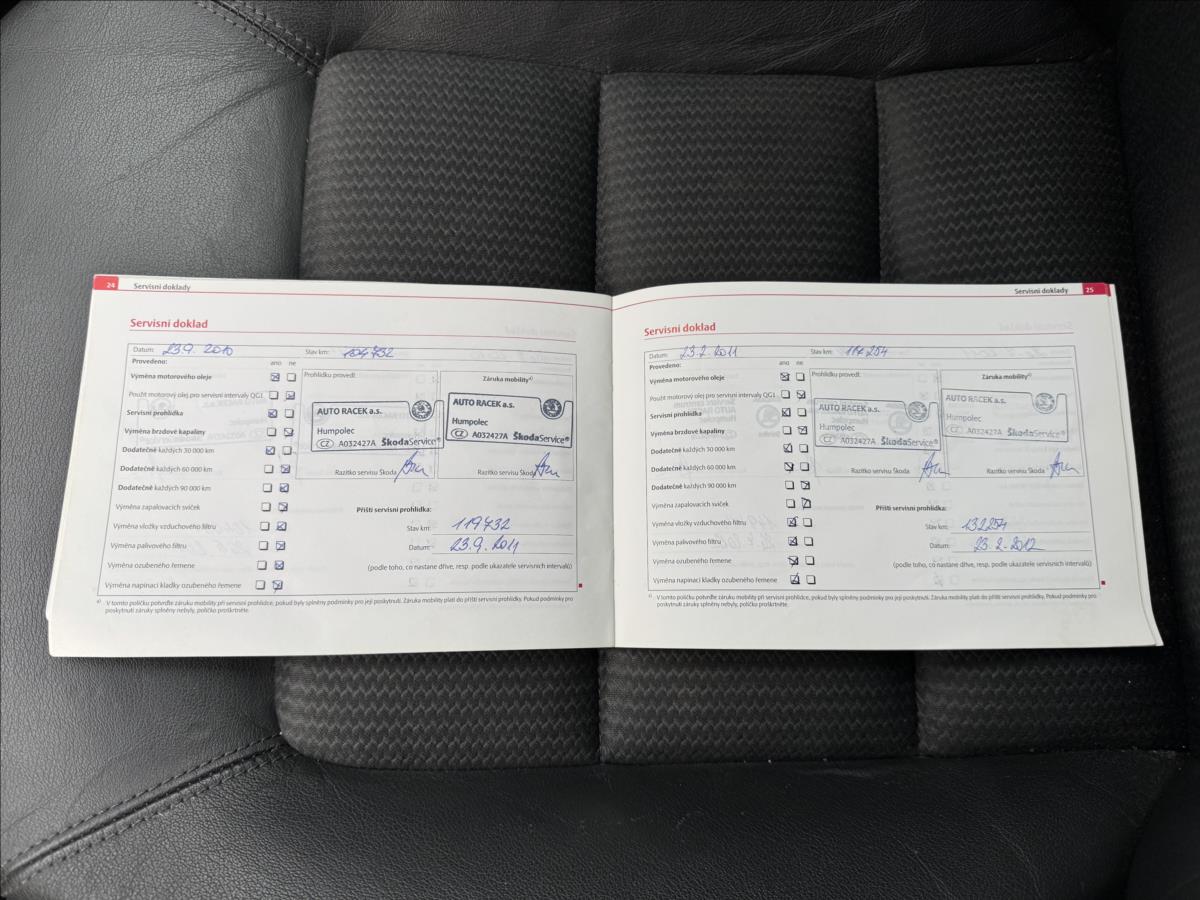 24 Servisní doklady
Servisní doklad
Datum: 23.9. 2010 Stav km: 104732
Provedeno: ano ne
Výměna motorového oleje
Prohlídku provedl: Záruka mobility⁴⁾
Použit motorový olej pro servisní intervaly QG1
Servisní prohlídka
Výměna brzdové kapaliny
Dodatečně každých 30 000 km
Dodatečně každých 60 000 km
Dodatečně každých 90 000 km
Výměna zapalovacích svíček
Výměna vložky vzduchového filtru
Výměna palivového filtru
Výměna ozubeného řemene
Výměna napínací kladky ozubeného řemene
AUTO RACEK a.s.
Humpolec
CZ A032427A ŠkodaService®
Razítko servisu Škoda
AUTO RACEK a.s.
Humpolec
CZ A032427A ŠkodaService®
Razítko servisu Škoda
Příští servisní prohlídka:
Stav km: 119732
Datum: 23.9.2011
(podle toho, co nastane dříve, resp. podle ukazatele servisních intervalů)
⁴⁾ V tomto políčku potvrďte záruku mobility při servisní prohlídce, pokud byly splněny podmínky pro její poskytnutí. Záruka mobility platí do příští servisní prohlídky. Pokud podmínky pro
poskytnutí záruky splněny nebyly, políčko proškrtněte.
Servisní doklady 25
Servisní doklad
Datum: 23.2.2011 Stav km: 117254
Provedeno: ano ne
Výměna motorového oleje
Prohlídku provedl: Záruka mobility⁴⁾
Použit motorový olej pro servisní intervaly QG1
Servisní prohlídka
Výměna brzdové kapaliny
Dodatečně každých 30 000 km
Dodatečně každých 60 000 km
Dodatečně každých 90 000 km
Výměna zapalovacích svíček
Výměna vložky vzduchového filtru
Výměna palivového filtru
Výměna ozubeného řemene
Výměna napínací kladky ozubeného řemene
AUTO RACEK a.s.
Humpolec
CZ A032427A ŠkodaService®
Razítko servisu Škoda
AUTO RACEK a.s.
Humpolec
CZ A032427A ŠkodaService®
Razítko servisu Škoda
Příští servisní prohlídka:
Stav km: 132254
Datum: 23.2.2012
(podle toho, co nastane dříve, resp. podle ukazatele servisních intervalů)
⁴⁾ V tomto políčku potvrďte záruku mobility při servisní prohlídce, pokud byly splněny podmínky pro její poskytnutí. Záruka mobility platí do příští servisní prohlídky. Pokud podmínky pro
poskytnutí záruky splněny nebyly, políčko proškrtněte.